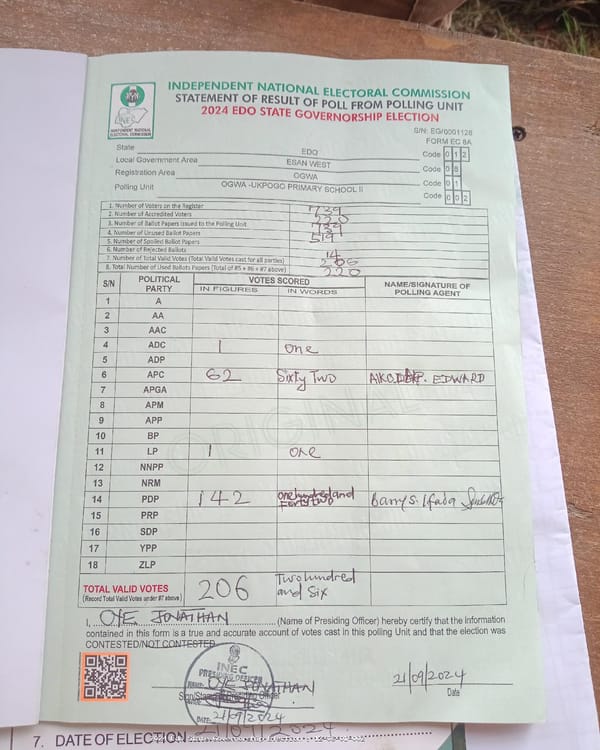 INDEPENDENT NATIONAL ELECTORAL COMMISSION
STATEMENT OF RESULT OF POLL FROM POLLING UNIT
2024 EDO STATE GOVERNORSHIP ELECTION
INEC
INDEPENDENT NATIONAL ELECTORAL COMMISSION
S/N: EG/0001128
FORM EC 8A
State EDO Code 0 1 2
Local Government Area ESAN WEST Code 0 8
Registration Area OGWA Code 0 1
Polling Unit OGWA -UKPOGO PRIMARY SCHOOL II Code 0 0 2
1. Number of Voters on the Register 739
2. Number of Accredited Voters 220
3. Number of Ballot Papers Issued to the Polling Unit 739
4. Number of Unused Ballot Papers 519
5. Number of Spoiled Ballot Papers
6. Number of Rejected Ballots 14
7. Number of Total Valid Votes (Total Valid Votes cast for all parties) 206
8. Total Number of Used Ballots Papers (Total of #5 + #6 + #7 above) 220
S/N POLITICAL PARTY VOTES SCORED NAME/SIGNATURE OF POLLING AGENT
IN FIGURES IN WORDS
1 A
2 AA
3 AAC
4 ADC 1 one
5 ADP
6 APC 62 Sixty Two EDWARD
7 APGA
8 APM
9 APP
10 BP
11 LP 1 one
12 NNPP
13 NRM
14 PDP 142 one hundred and Forty two Barry S.
15 PRP
16 SDP
17 YPP
18 ZLP
ORIGINAL
TOTAL VALID VOTES 206 Two hundred and Six
(Record Total Valid Votes under #7 above)
I, OYE JONATHAN (Name of Presiding Officer) hereby certify that the information
contained in this form is a true and accurate account of votes cast in this polling Unit and that the election was
CONTESTED/NOT CONTESTED
INEC
PRESIDING OFFICER
NAME: OYE JONATHAN
Sign/Stamp Officer
DATE: 21/09/2024
21/09/2024
Date
7. DATE OF ELECTION 21/09/2024